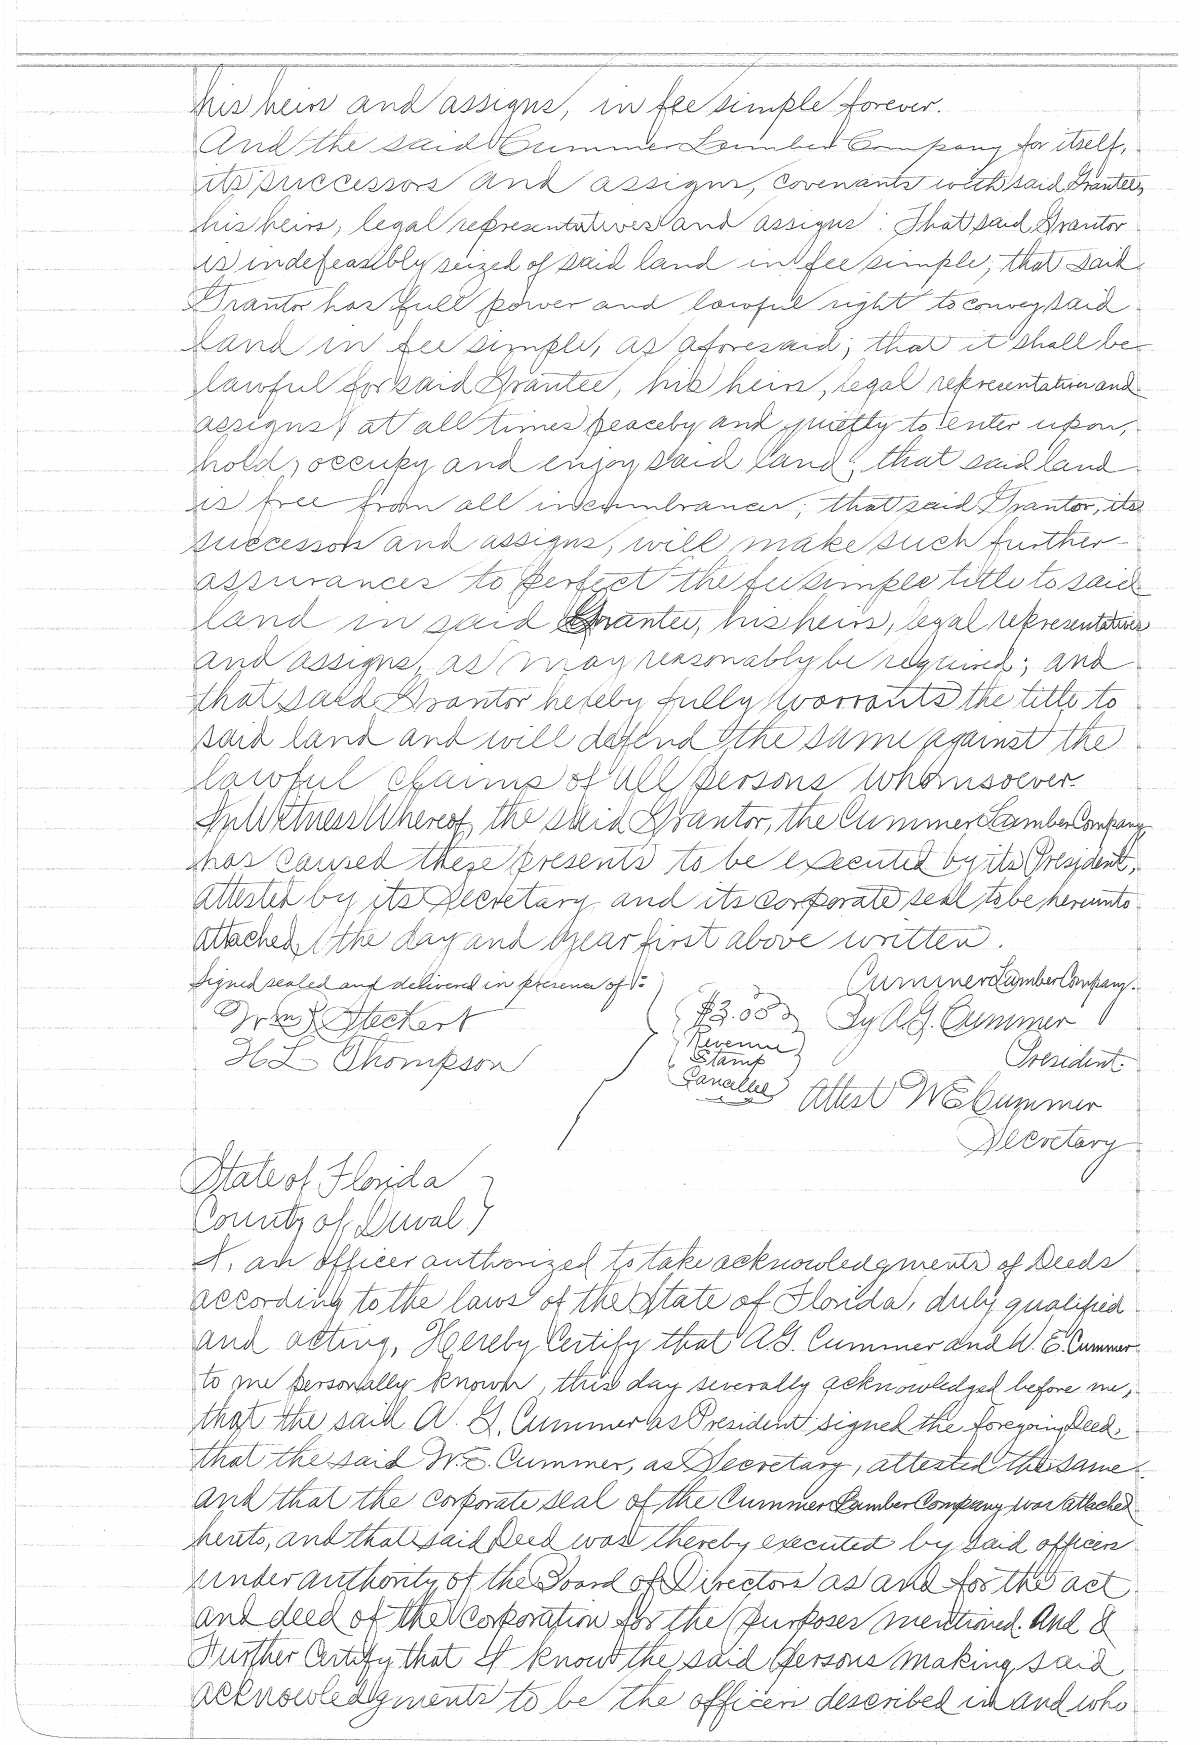 his heirs and assigns, in fee simple forever.
And the said Cummer Lumber Company for itself,
its successors and assigns, covenants with said Grantee,
his heirs, legal representatives and assigns: That said Grantor
is indefeasibly seized of said land in fee simple; that said
Grantor has full power and lawful right to convey said
land in fee simple, as aforesaid; that it shall be
lawful for said Grantee, his heirs, legal representatives and
assigns, at all times peaceby and quietly to enter upon,
hold, occupy and enjoy said land; that said land
is free from all incumbrances; that said Grantor, its
successors and assigns, will make such further
assurances to perfect the fee simple title to said
land in said Grantee, his heirs, legal representatives
and assigns, as may reasonably be required; and
that said Grantor hereby fully warrants the title to
said land and will defend the same against the
lawful claims of all persons whomsoever.
In Witness Whereof, the said Grantor, the Cummer Lumber Company,
has caused these presents to be executed by its President,
attested by its Secretary and its corporate seal to be hereunto
attached, the day and year first above written.
Signed sealed and delivered in presence of: Cummer Lumber Company.
Wm J Steckert $3.00 By A.G. Cummer
H L Thompson Revenue President.
Stamp
Cancelled Attest W E Cummer
Secretary
State of Florida }
County of Duval. }
I, an officer authorized to take acknowledgments of Deeds
according to the laws of the State of Florida, duly qualified
and acting, Hereby Certify that A.G. Cummer and W. E. Cummer
to me personally known, this day severally acknowledged before me,
that the said A. G. Cummer as President signed the foregoing Deed,
that the said W.E. Cummer, as Secretary, attested the same
and that the corporate seal of the Cummer Lumber Company was attached
hereto, and that said Deed was thereby executed by said officers
under authority of the Board of Directors as and for the act
and deed of the corporation for the purposes mentioned. And I
Further Certify that I know the said persons making said
acknowledgments to be the officers described in and who